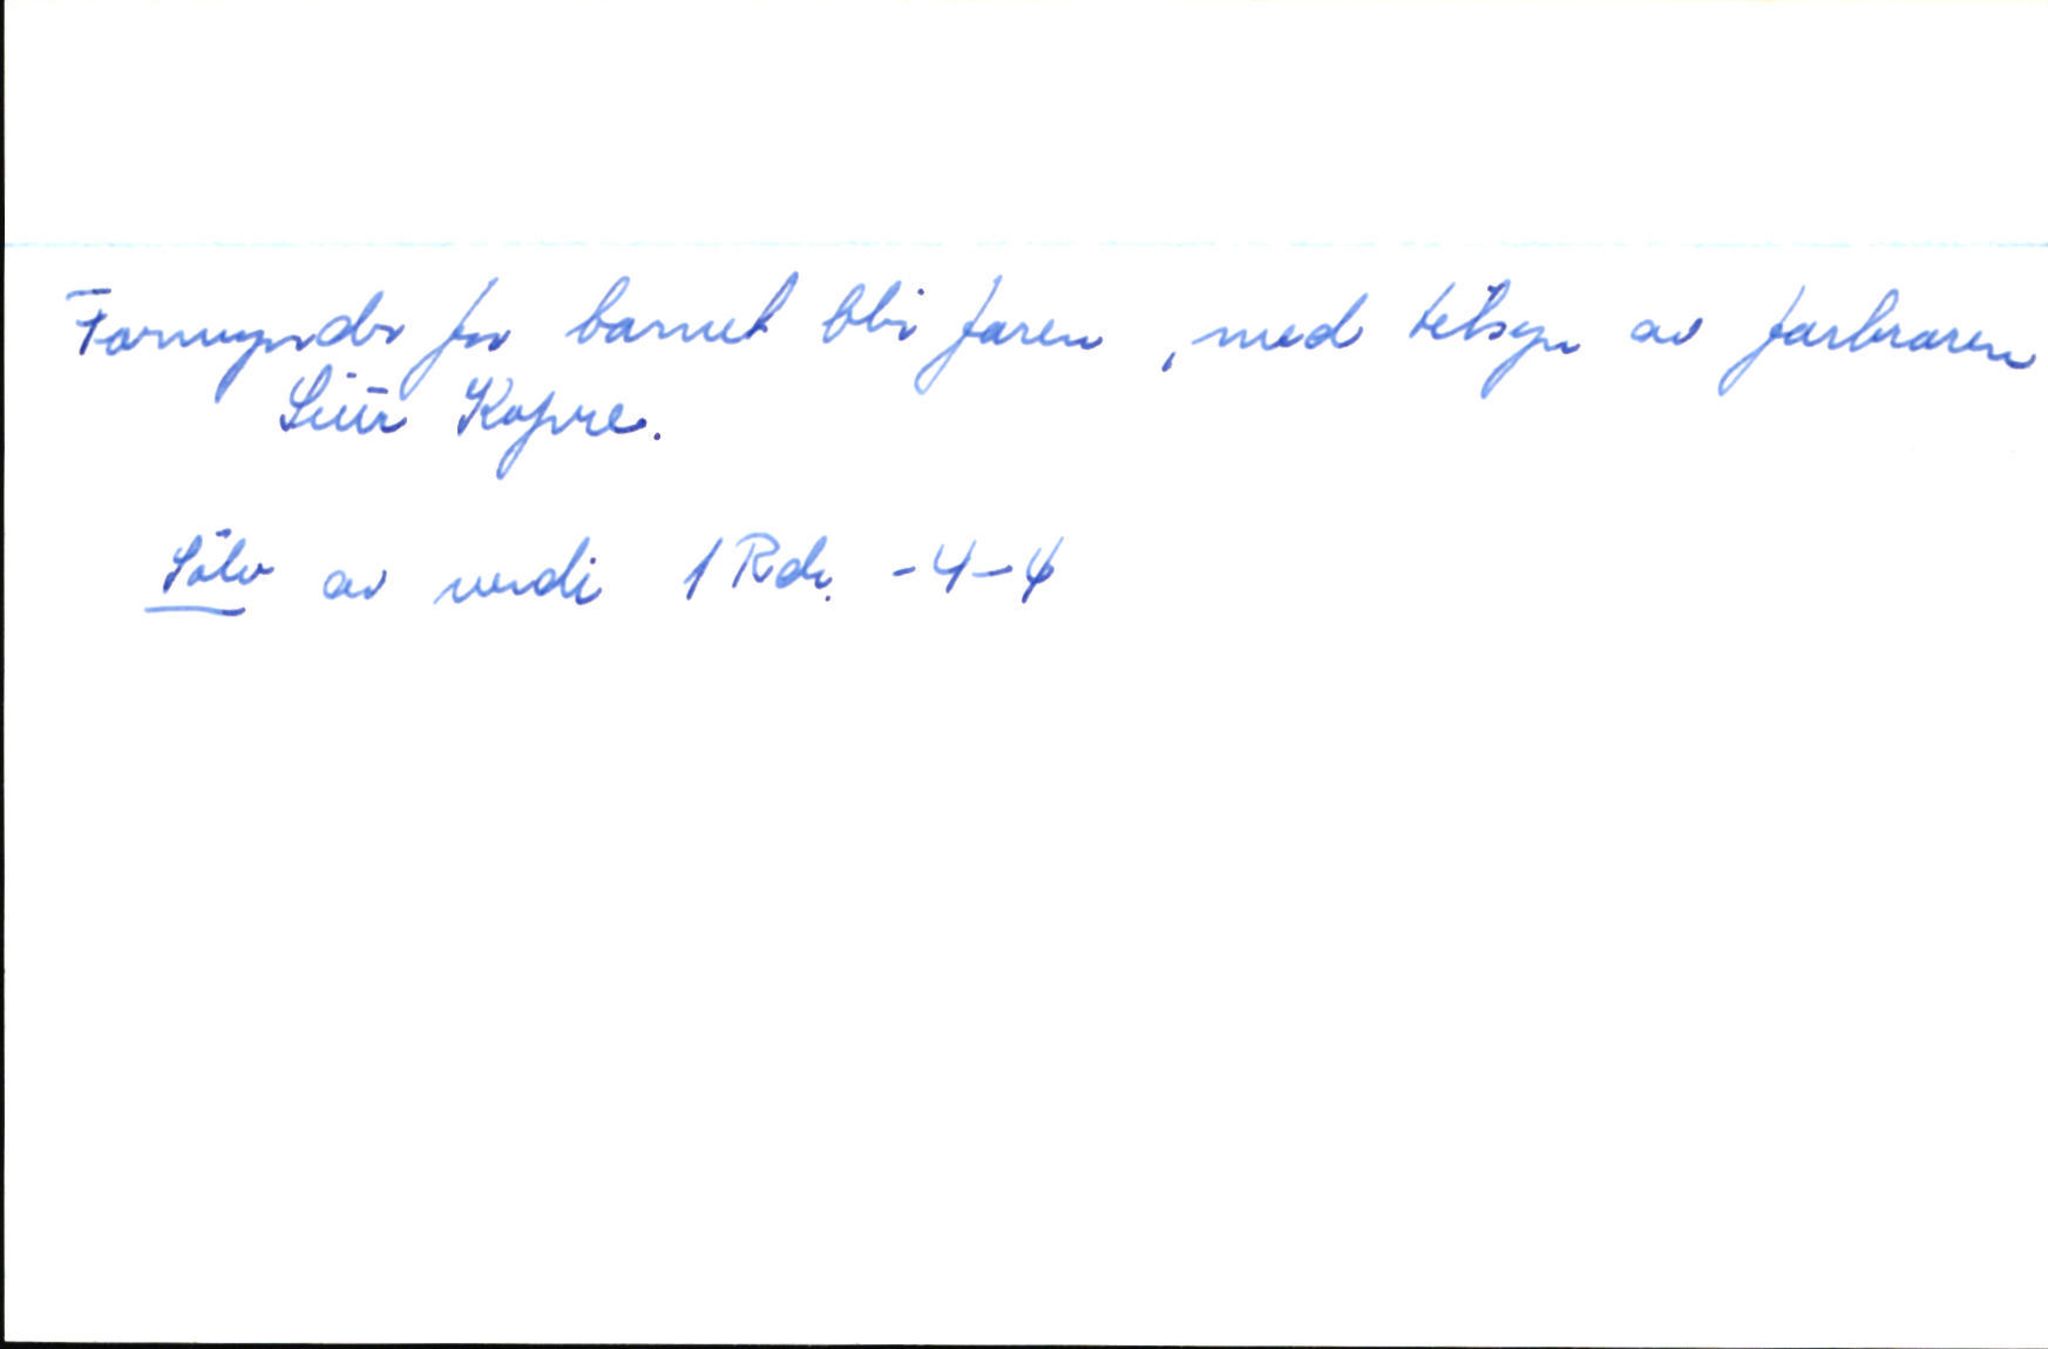 Formynder for barnet blir faren, med tilsyn av farbroren
Siur Kopre.
Sölv av verdi 1 Rdr. -4-4